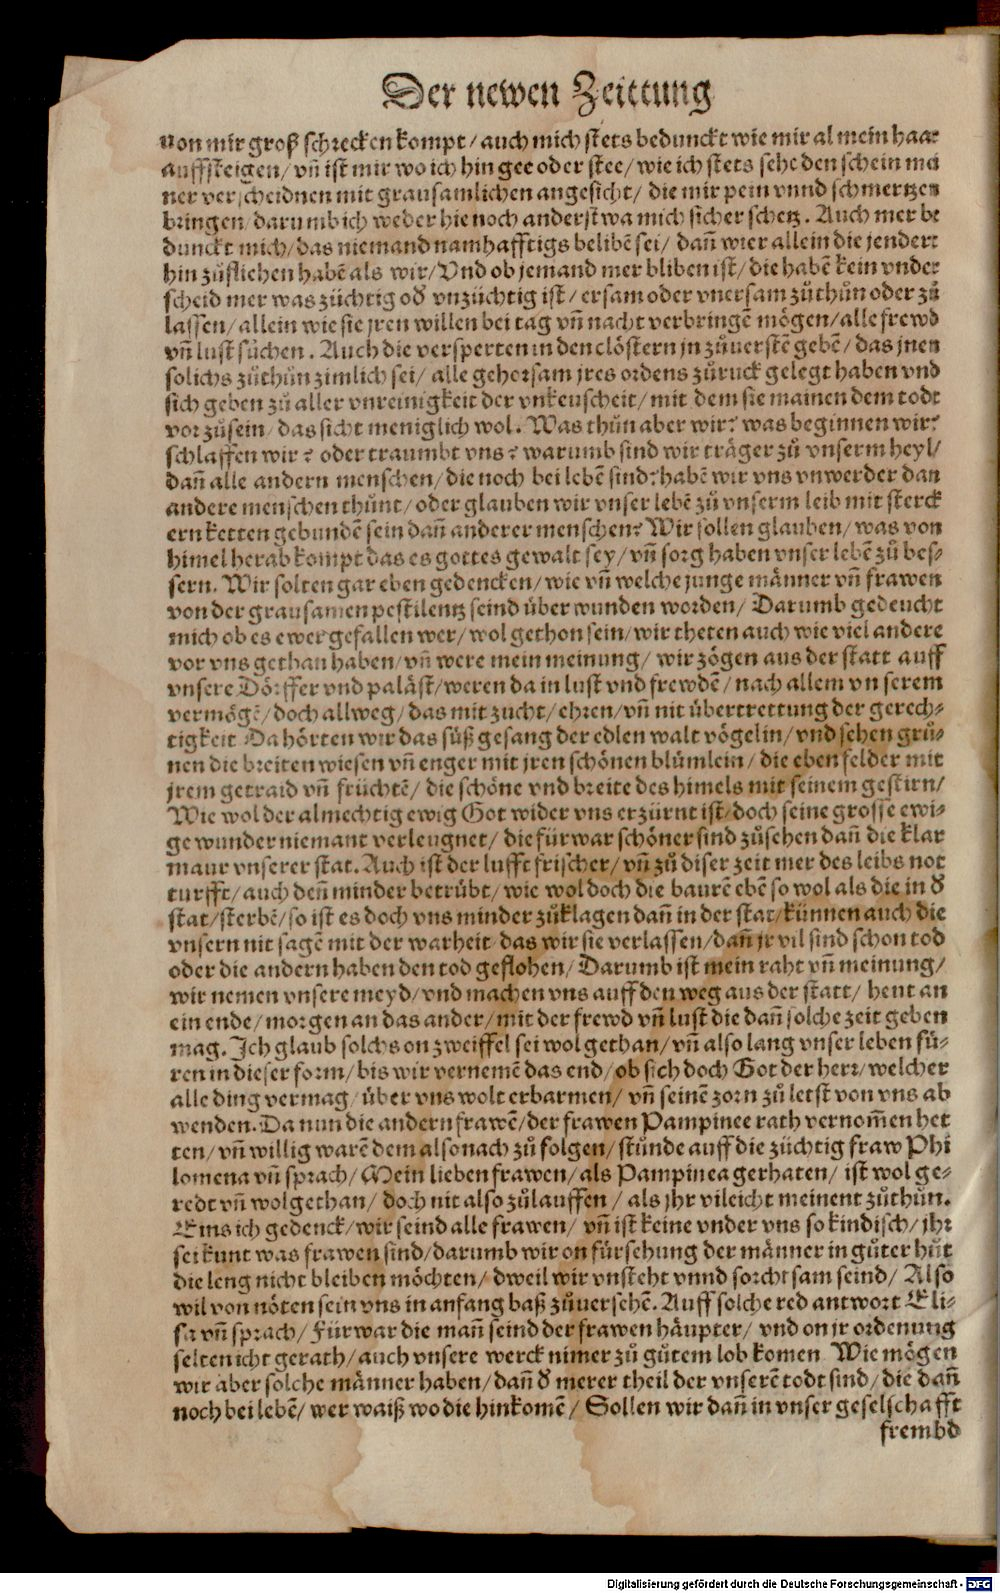 Der newen Zeittung
von mir groß schrecken kompt/ auch mich stets bedunckt wie mir al mein haar
auffsteigen/ vñ ist mir wo ich hin gee oder stee/ wie ich stets sehe den schein mei
ner verscheidnen mit grausamlichen angesicht/ die mir pein vnnd schmertzen
bringen/ darumb ich weder hie noch anderstwa mich sicher schetz. Auch mer be
dunckt mich/ das niemand namhafftigs belibē sei/ dañ wier allein die jendert
hin zůflichen habē als wir/ Vnd ob jemand mer bliben ist/ die habē kein vnder
scheid mer was züchtig oď vnzüchtig ist/ ersam oder vnersam zůthůn oder zů
lassen/ allein wie sie jren willen bei tag vñ nacht verbringē mögen/ alle frewd
vñ lust sůchen. Auch die versperten in den clöstern jn zůuerstē gebē/ das jnen
solichs zůthůn zimlich sei/ alle gehorsam jres ordens zůruck gelegt haben vnd
sich geben zů aller vnreinigkeit der vnkeuscheit/ mit dem sie mainen dem todt
vor zůsein/ das sicht meniglich wol. Was thůn aber wir? was beginnen wir?
schlaffen wir? oder traumbt vns? warumb sind wir träger zů vnserm heyl/
dañ alle andern menschen/ die noch bei lebē sind? habē wir vns vnwerder dan
andere menschen thůnt/ oder glauben wir vnser lebē zů vnserm leib mit sterck
ern ketten gebundē sein dañ anderer menschen? Wir sollen glauben/ was von
himel herab kompt das es gottes gewalt sey/ vñ sorg haben vnser lebē zů bes-
sern. Wir solten gar eben gedencken/ wie vñ welche junge männer vñ frawen
von der grausamen pestilentz seind überwunden worden/ Darumb gedeucht
mich ob es ewer gefallen wer/ wol gethon sein/ wir theten auch wie viel andere
vor vns gethan haben/ vñ were mein meinung/ wir zögen aus der statt auff
vnsere Dörffer vnd paläst/ weren da in lust vnd frewdē/ nach allem vn serem
vermögē/ doch allweg/ das mit zucht/ ehren/ vñ nit übertrettung der gerech-
tigkeit Da hörten wir das süß gesang der edlen walt vögelin/ vnd sehen grů-
nen die breiten wiesen vñ enger mit jren schönen blümlein/ die eben felder mit
jrem getraid vñ früchtē/ die schöne vnd breite des himels mit seinem gestirn/
Wie wol der almechtig ewig Got wider vns erzürnt ist/ doch seine grosse ewi-
ge wunder niemant verleugnet/ die fürwar schöner sind zůsehen dañ die klar
maur vnserer stat. Auch ist der lufft frischer/ vñ zů diser zeit mer des leibs not
turfft/ auch deñ minder betrübt/ wie wol doch die baurē ebē so wol als die in ď
stat/ sterbē/ so ist es doch vns minder zůklagen dañ in der stat/ künnen auch die
vnsern nit sagē mit der warheit das wir sie verlassen/ dañ jr vil sind schon tod
oder die andern haben den tod geflohen/ Darumb ist mein raht vñ meinung/
wir nemen vnsere meyd/ vnd machen vns auff den weg aus der statt/ heut an
ein ende/ morgen an das ander/ mit der frewd vñ lust die dañ solche zeit geben
mag. Ich glaub solchs on zweiffel sei wol gethan/ vñ also lang vnser leben fü-
ren in dieser form/ bis wir vernemē das end/ ob sich doch Got der herr/ welcher
alle ding vermag/ über vns wolt erbarmen/ vñ seinē zorn zů letst von vns ab
wenden. Da nun die andern frawē/ der frawen Pampinee rath vernom̄en het
ten/ vñ willig warē dem also nach zů folgen/ stůnde auff die züchtig fraw Phi
lomena vñ sprach/ Mein lieben frawen/ als Pampinea gerhaten/ ist wol ge-
redt vñ wolgethan/ doch nit also zůlauffen/ als jhr vileicht meinent zůthůn.
Eins ich gedenck/ wir seind alle frawen/ vñ ist keine vnder vns so kindisch/ jhr
sei kunt was frawen sind/ darumb wir on fürsehung der männer in gůter hůt
die leng nicht bleiben möchten/ dweil wir vnsteht vnnd forchtsam seind/ Also
wil von nöten sein vns in anfang baß zůuersehē. Auff solche red antwort Eli-
sa vñ sprach/ Fürwar die mañ seind der frawen häupter/ vnd on jr ordenung
selten icht gerath/ auch vnsere werck nimer zů gůtem lob komen Wie mögen
wir aber solche männer haben/ dañ ď merer theil der vnserē todt sind/ die dañ
noch bei lebē/ wer waiß wo die hinkomē/ Sollen wir dañ in vnser geselschafft
frembd
Digitalisierung gefördert durch die Deutsche Forschungsgemeinschaft - DFG